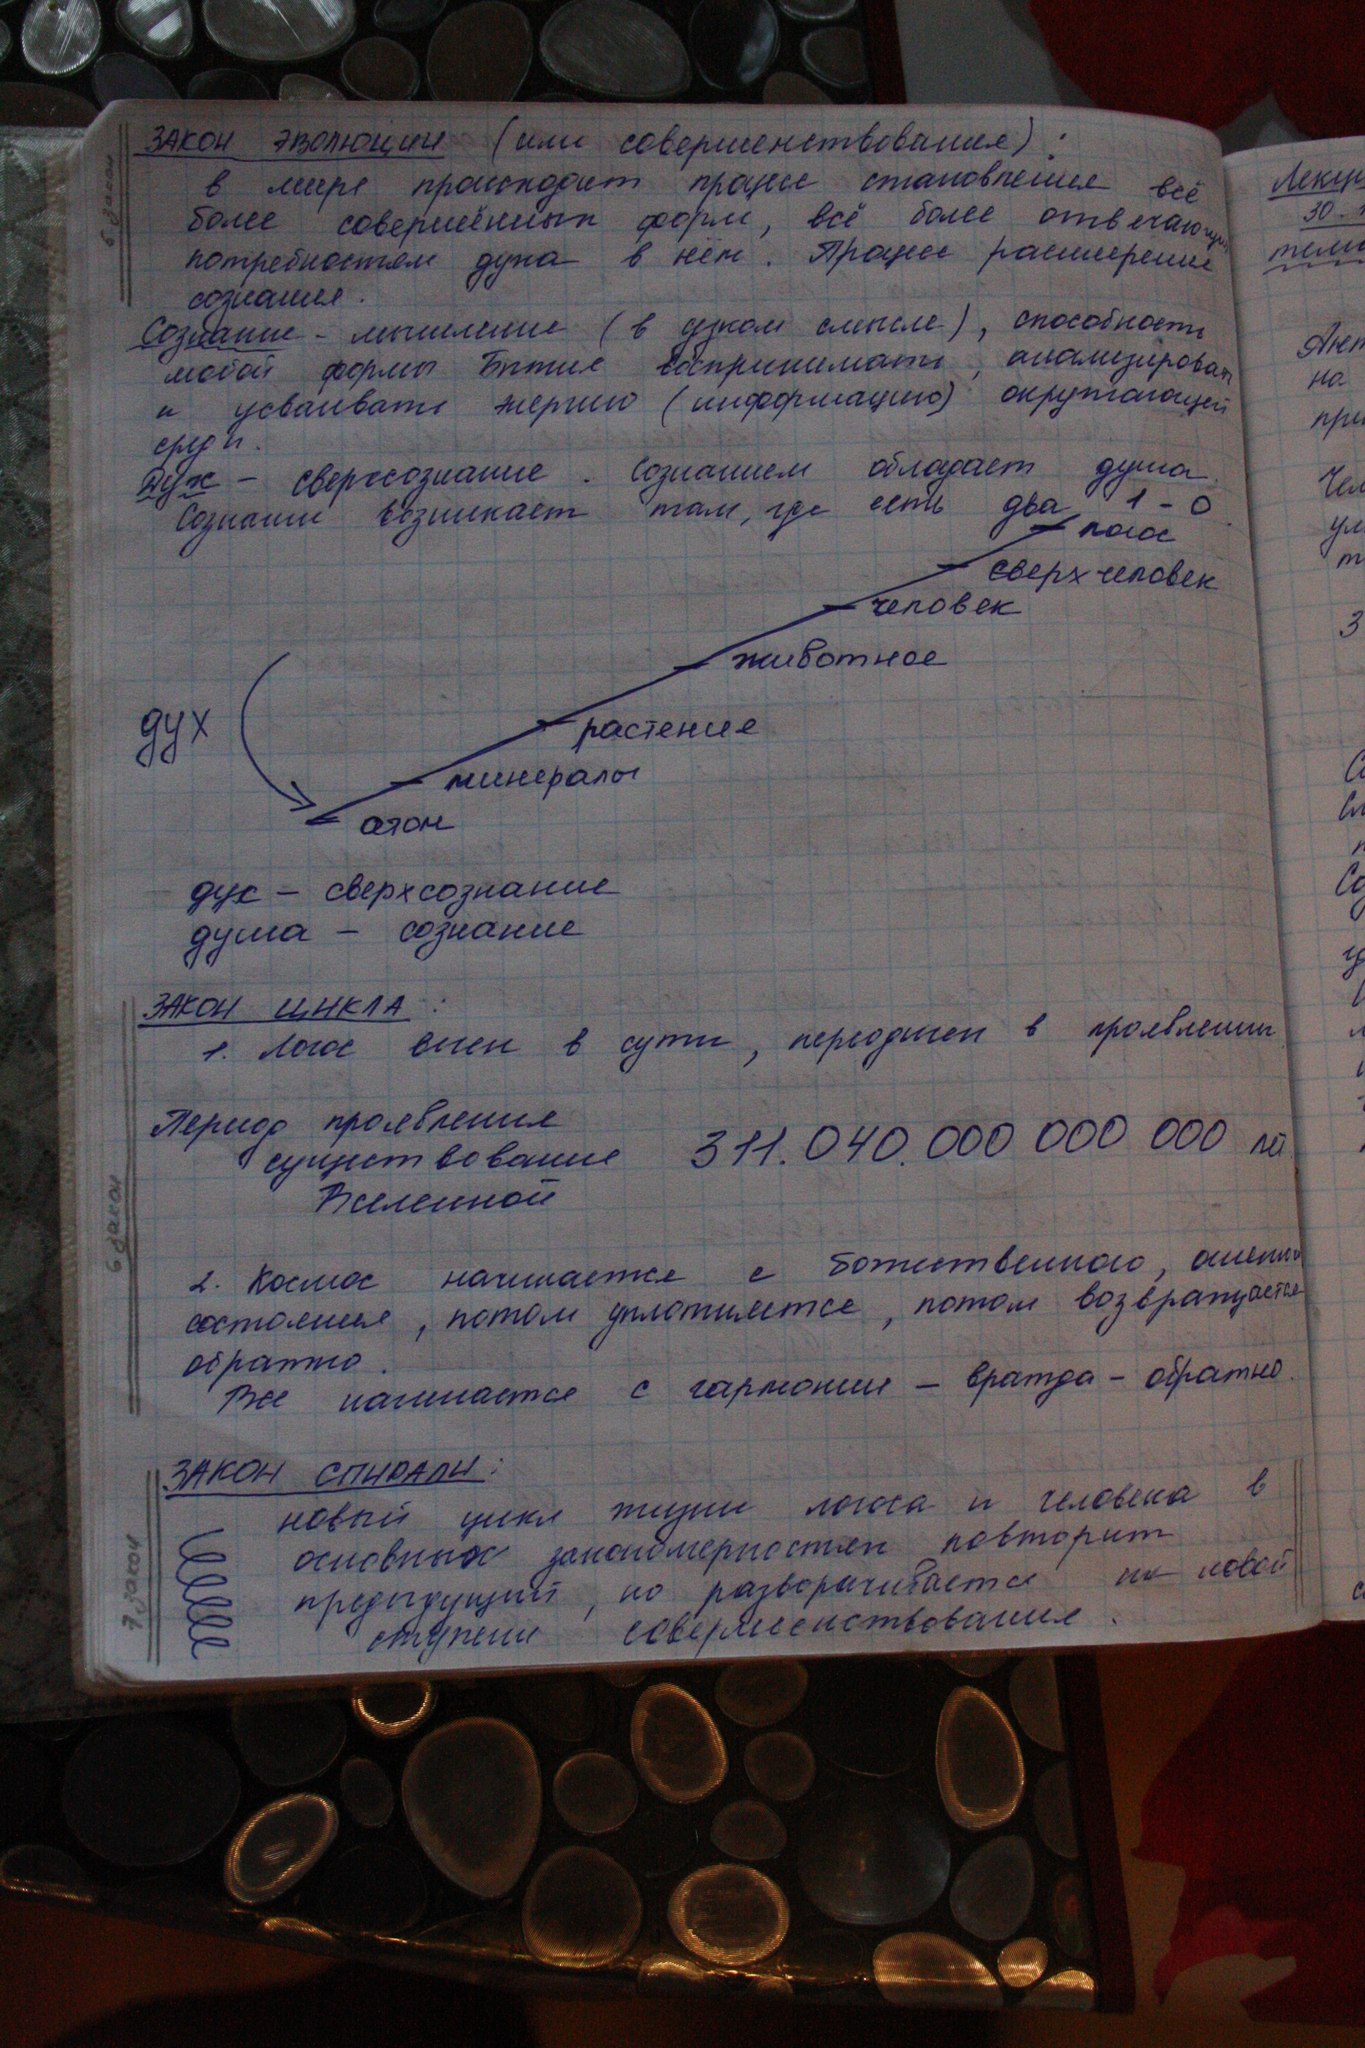 ЗАКОН ЭВОЛЮЦИИ (или совершенствования):
в мире происходит процесс становления всё
более совершённых форм, всё более отвечающих
потребностям духа в нём. Процесс расширения
сознания.
Сознание - мышление (в узком смысле), способность
любой формы Бытия воспринимать, анализировать
и усваивать энергию (информацию) окружающей
среды.
Дух - сверхсознание. Сознанием обладает душа.
Сознание возникает там, где есть два 1 - 0.
логос
сверхчеловек
человек
животное
дух
растение
минералы
атом
дух - сверхсознание
душа - сознание
ЗАКОН ЦИКЛА:
1. Логос вечен в сути, периодичен в проявлении
Период проявления
существования 311.040.000 000 000 лет.
Вселенной
2. Космос начинается с Божественного,
состояния, потом уплотняется, потом возвращается
обратно.
Все начинается с гармонии - вражда - обратно.
ЗАКОН СПИРАЛИ:
новый цикл жизни логоса и человека в
основных закономерностях повторит
предыдущий, но разворачивается на новой
ступени совершенствования.
6 закон
6 закон
7 закон
Лекция
30.
тема
на
при